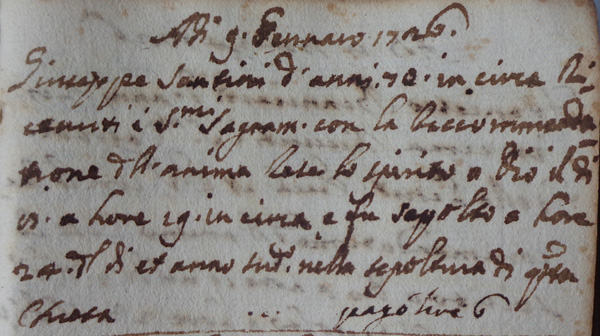 Adi 9. Gennaro 1726.
Giuseppe Santini d'anni. 78. in circa Ri=
cevuti i S.mi Sagram. con la Raccommenda=
tione dll'anima Rese lo spirito a Dio il di
a hore 19. in circa e fu sepolto a hore
24. dl di et anno sud.o nella sepoltura di qsta
Chiesa ... pagò lire 6